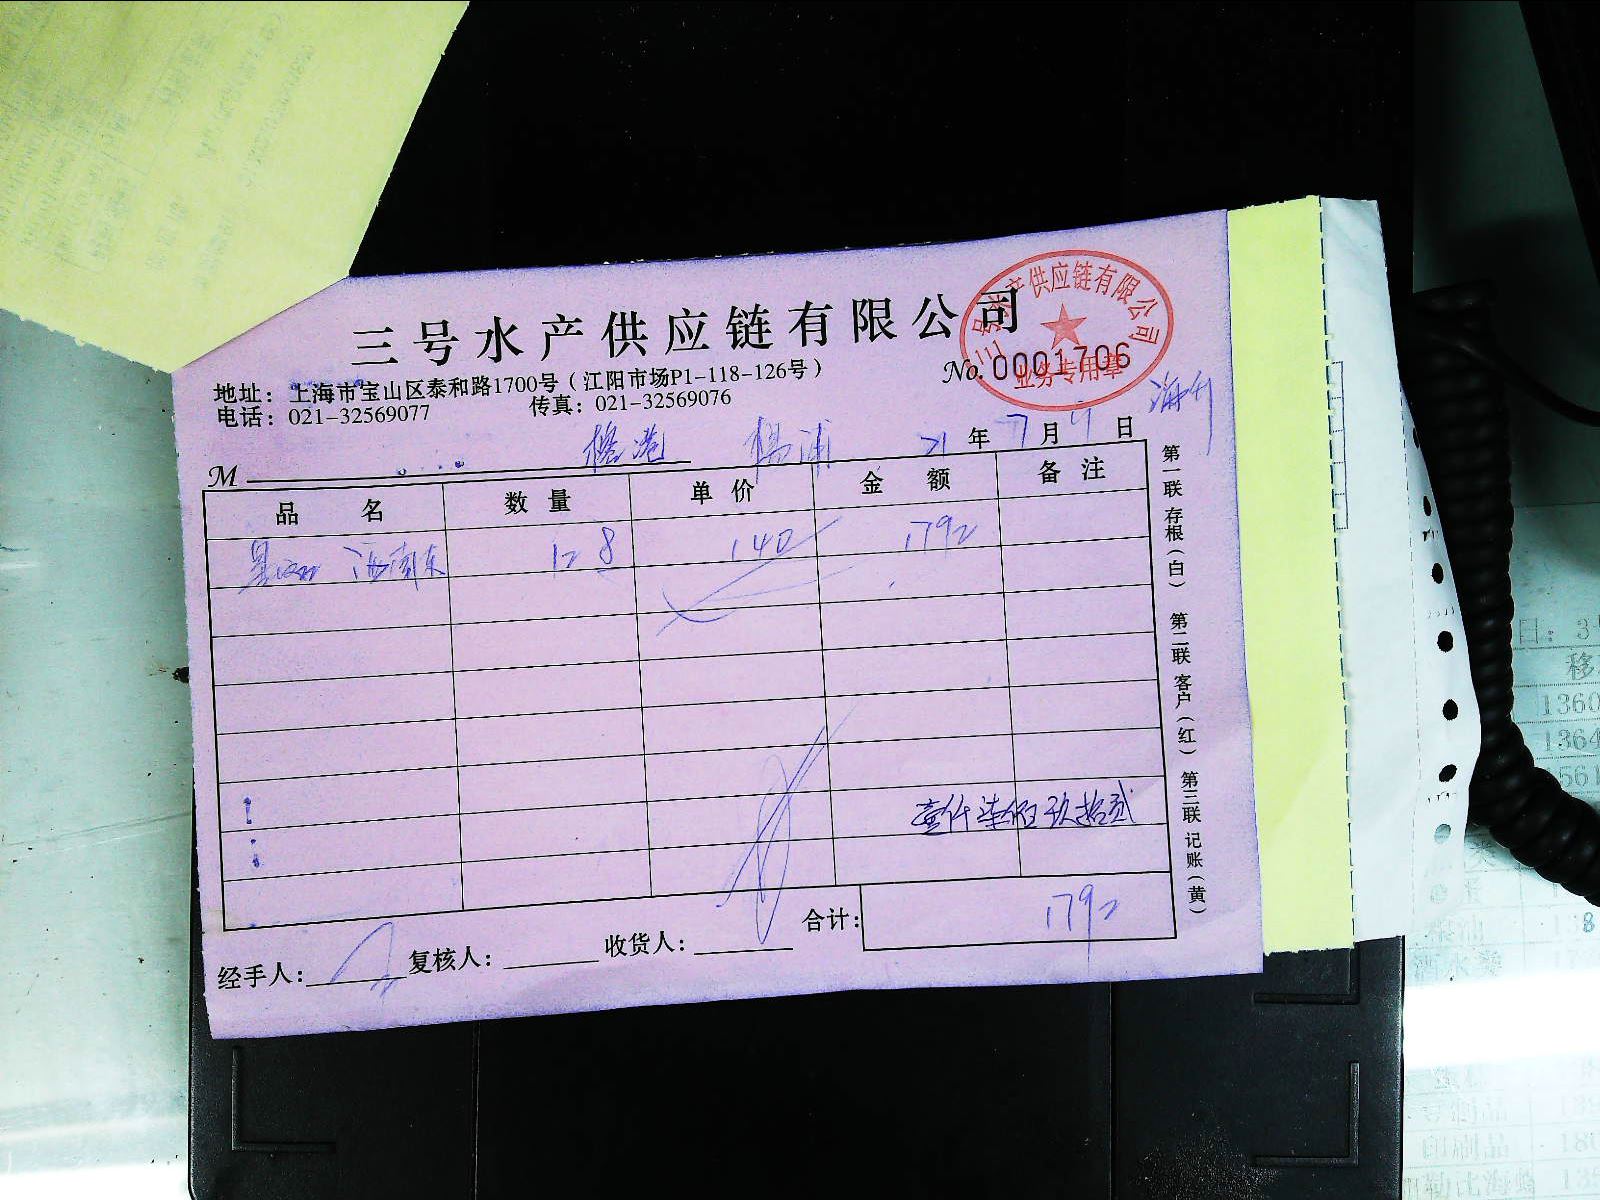 三号水产供应链有限公司
三号水产供应链有限公司
业务专用章
地址：上海市宝山区泰和路1700号（江阳市场P1-118-126号）
No. 0001706
电话：021-32569077 传真：021-32569076
M 杨浦 21年7月9日
品名 数量 单价 金额 备注
海南东 12.8 140 1792
壹仟柒佰玖拾贰
合计： 1792
经手人： 复核人： 收货人：
第一联 存根（白） 第二联 客户（红） 第三联 记账（黄）